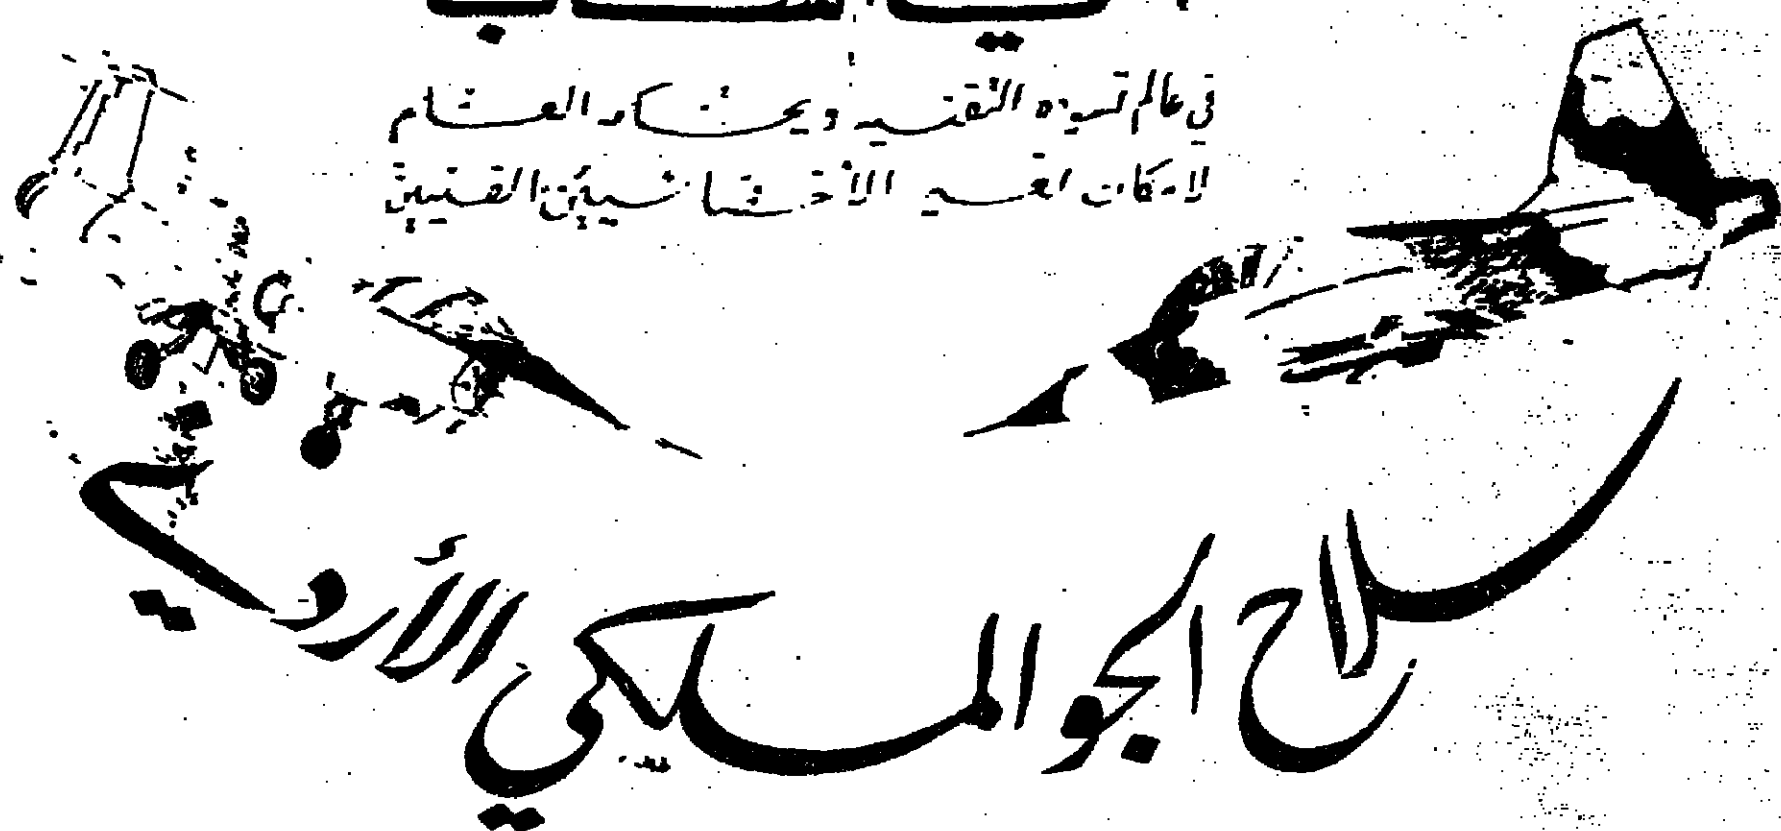 في عالم تسوده التقنية ويحتار العالم
لامكان لغير الأخصائيين الفنيين
سلاح الجو الملكي الأردني